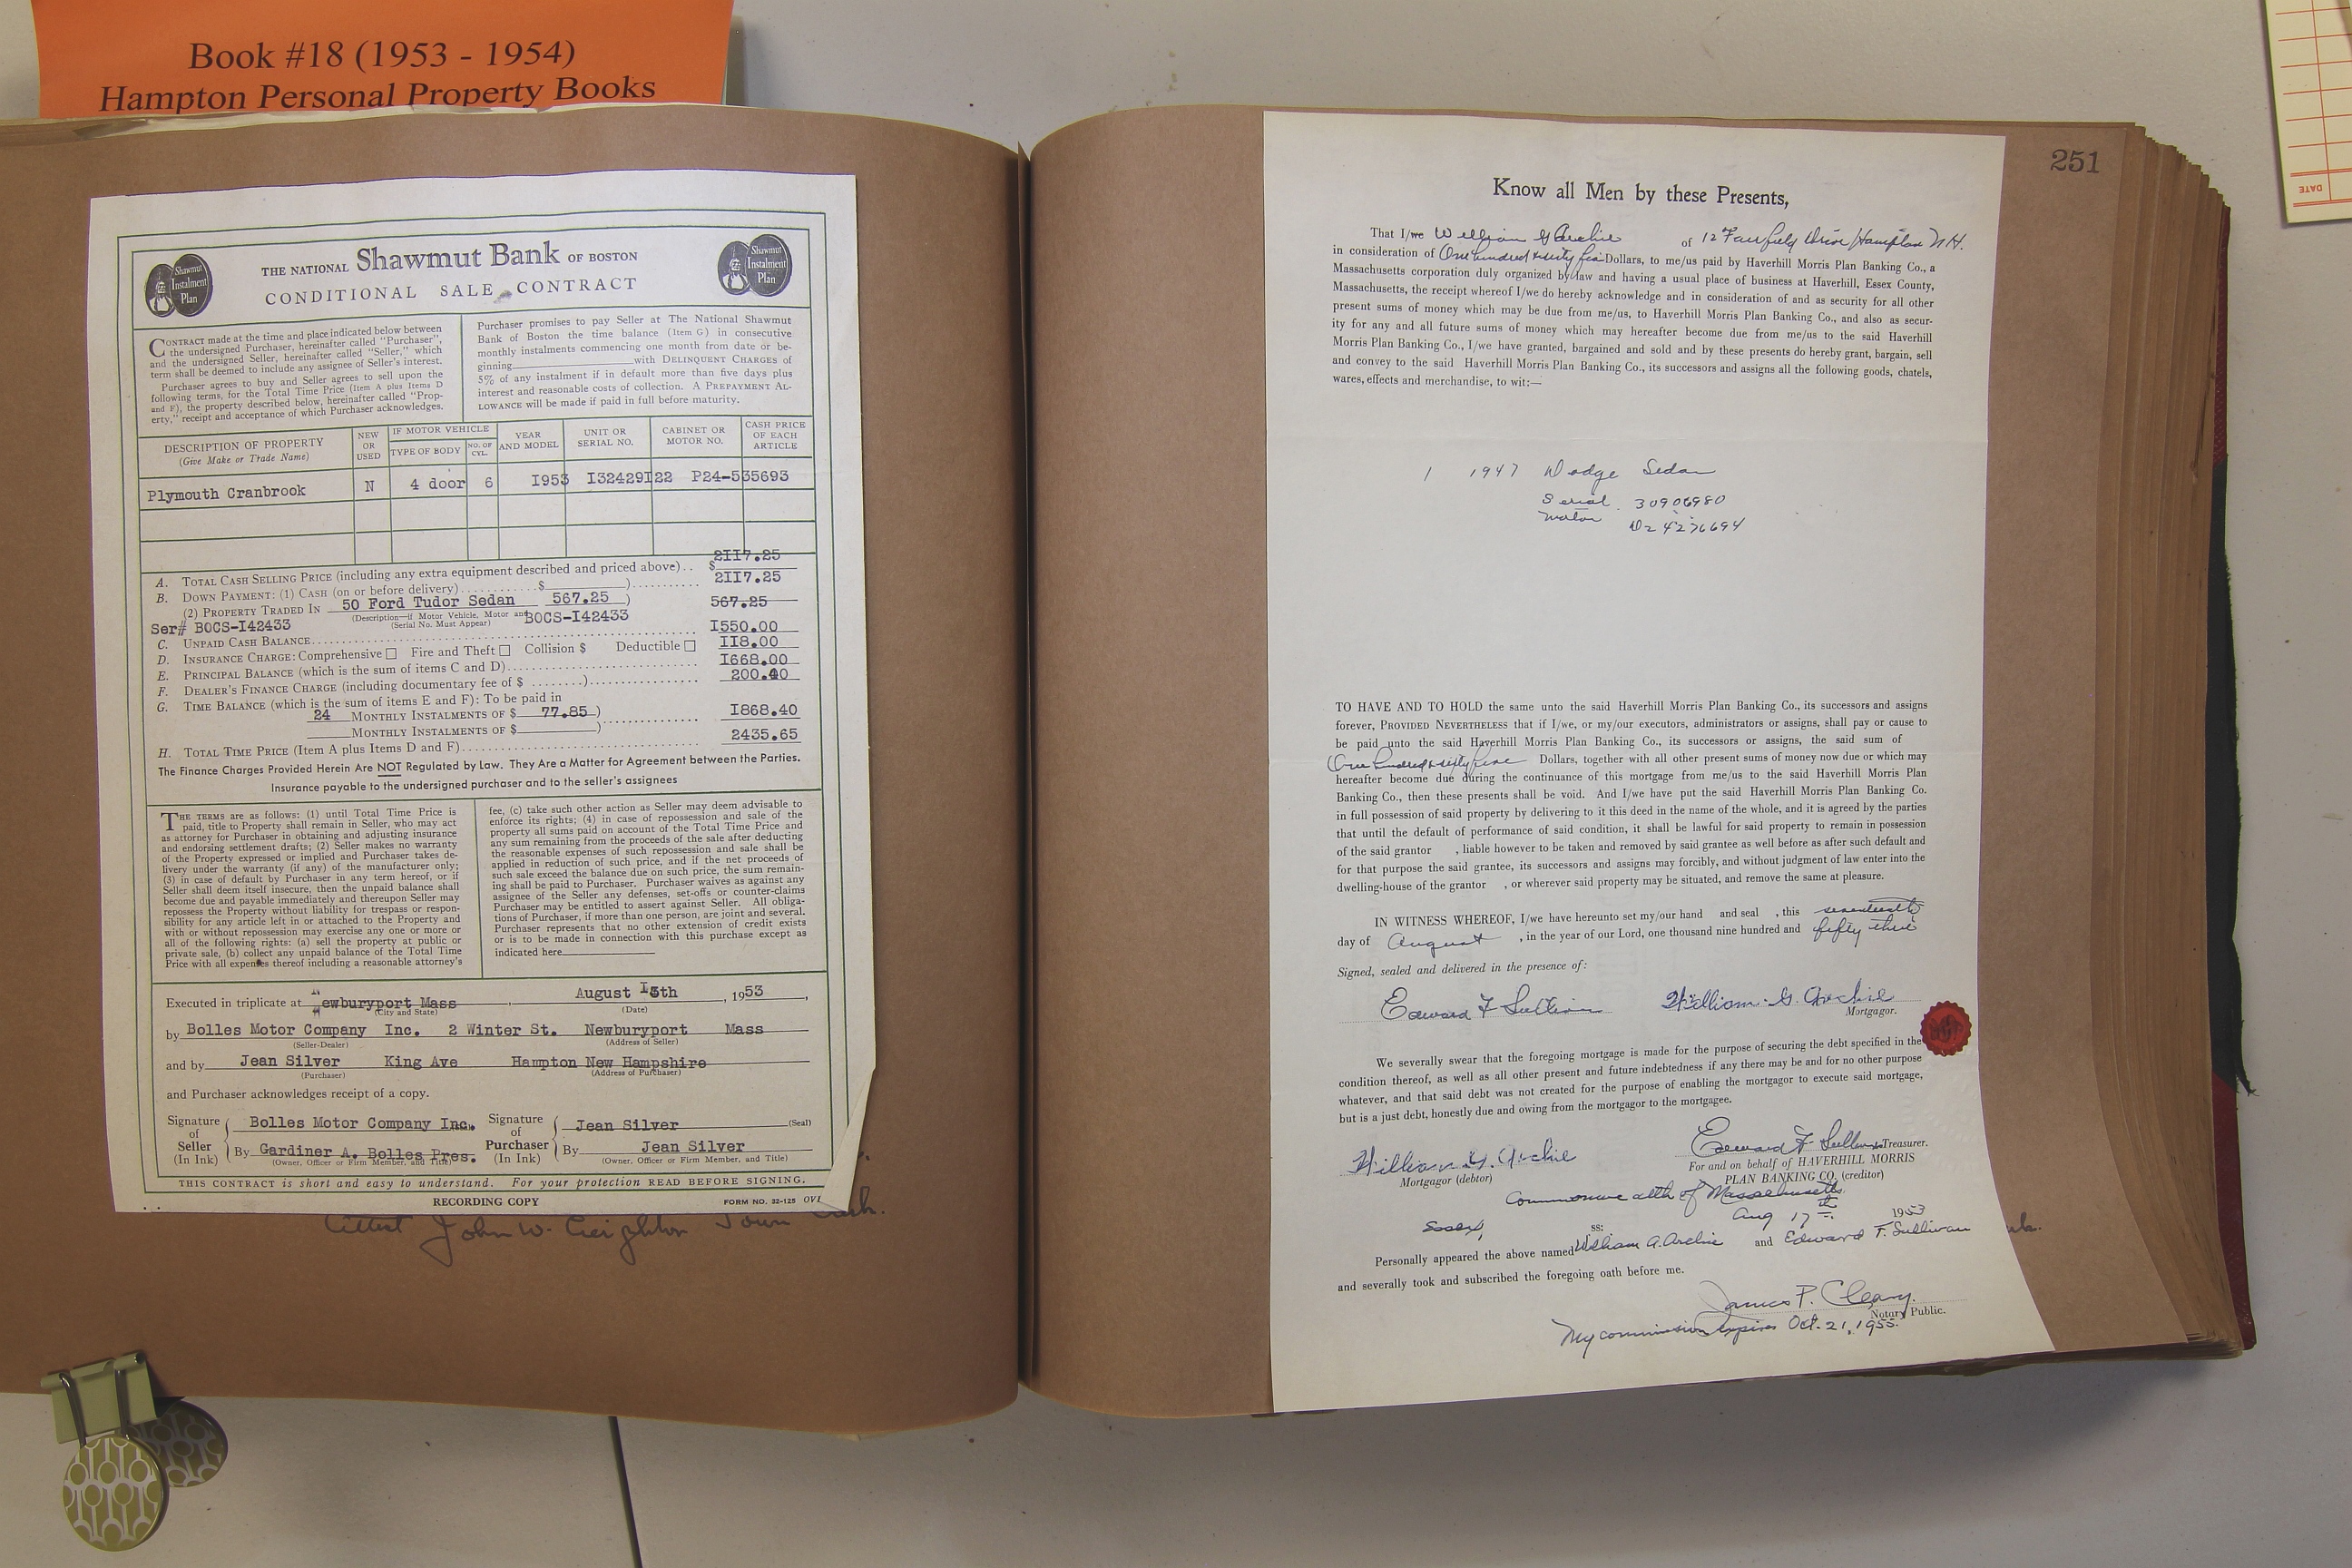 Book #18 (1953 - 1954)
Hampton Personal Property Books
Shawmut
Instalment
Plan
THE NATIONAL Shawmut Bank OF BOSTON
CONDITIONAL SALE CONTRACT
Shawmut
Instalment
Plan
CONTRACT made at the time and place indicated below between
the undersigned Purchaser, hereinafter called "Purchaser",
and the undersigned Seller, hereinafter called "Seller," which
term shall be deemed to include any assignee of Seller's interest.
Purchaser agrees to buy and Seller agrees to sell upon the
following terms, for the Total Time Price (Item A plus Items D
and F), the property described below, hereinafter called "Prop-
erty," receipt and acceptance of which Purchaser acknowledges.
Purchaser promises to pay Seller at The National Shawmut
Bank of Boston the time balance (Item G) in consecutive
monthly instalments commencing one month from date or be-
ginning with DELINQUENT CHARGES of
5% of any instalment if in default more than five days plus
interest and reasonable costs of collection. A PREPAYMENT AL-
LOWANCE will be made if paid in full before maturity.
DESCRIPTION OF PROPERTY
(Give Make or Trade Name)
NEW
OR
USED
IF MOTOR VEHICLE
TYPE OF BODY
NO. OF
CYL.
YEAR
AND MODEL
UNIT OR
SERIAL NO.
CABINET OR
MOTOR NO.
CASH PRICE
OF EACH
ARTICLE
Plymouth Cranbrook N 4 door 6 I953 I32429I22 P24-535693
2II7.25
A. TOTAL CASH SELLING PRICE (including any extra equipment described and priced above).. $
2II7.25
B. DOWN PAYMENT: (1) CASH (on or before delivery) $ )
(2) PROPERTY TRADED IN 50 Ford Tudor Sedan 567.25 ) 567.25
(Description—if Motor Vehicle, Motor and
(Serial No. Must Appear)
Ser# BOCS-I42433 BOCS-I42433
C. UNPAID CASH BALANCE I550.00
D. INSURANCE CHARGE: Comprehensive Fire and Theft Collision $ Deductible II8.00
E. PRINCIPAL BALANCE (which is the sum of items C and D) I668.00
F. DEALER'S FINANCE CHARGE (including documentary fee of $ ) 200.40
G. TIME BALANCE (which is the sum of items E and F): To be paid in
24 MONTHLY INSTALMENTS OF $ 77.85 ) I868.40
MONTHLY INSTALMENTS OF $ )
H. TOTAL TIME PRICE (Item A plus Items D and F) 2435.65
The Finance Charges Provided Herein Are NOT Regulated by Law. They Are a Matter for Agreement between the Parties.
Insurance payable to the undersigned purchaser and to the seller's assignees
THE TERMS are as follows: (1) until Total Time Price is
paid, title to Property shall remain in Seller, who may act
as attorney for Purchaser in obtaining and adjusting insurance
and endorsing settlement drafts; (2) Seller makes no warranty
of the Property expressed or implied and Purchaser takes de-
livery under the warranty (if any) of the manufacturer only;
(3) in case of default by Purchaser in any term hereof, or if
Seller shall deem itself insecure, then the unpaid balance shall
become due and payable immediately and thereupon Seller may
repossess the Property without liability for trespass or respon-
sibility for any article left in or attached to the Property and
with or without repossession may exercise any one or more or
all of the following rights: (a) sell the property at public or
private sale, (b) collect any unpaid balance of the Total Time
Price with all expenses thereof including a reasonable attorney's
fee, (c) take such other action as Seller may deem advisable to
enforce its rights; (4) in case of repossession and sale of the
property all sums paid on account of the Total Time Price and
any sum remaining from the proceeds of the sale after deducting
the reasonable expenses of such repossession and sale shall be
applied in reduction of such price, and if the net proceeds of
such sale exceed the balance due on such price, the sum remain-
ing shall be paid to Purchaser. Purchaser waives as against any
assignee of the Seller any defenses, set-offs or counter-claims
Purchaser may be entitled to assert against Seller. All obliga-
tions of Purchaser, if more than one person, are joint and several.
Purchaser represents that no other extension of credit exists
or is to be made in connection with this purchase except as
indicated here
Executed in triplicate at Newburyport Mass , August I5th , 1953,
(City and State) (Date)
by Bolles Motor Company Inc. 2 Winter St. Newburyport Mass
(Seller-Dealer) (Address of Seller)
and by Jean Silver King Ave Hampton New Hampshire
(Purchaser) (Address of Purchaser)
and Purchaser acknowledges receipt of a copy.
Signature
of
Seller
(In Ink)
Bolles Motor Company Inc.
By Gardiner A. Bolles Pres.
(Owner, Officer or Firm Member, and Title)
Signature
of
Purchaser
(In Ink)
Jean Silver (Seal)
By Jean Silver
(Owner, Officer or Firm Member, and Title)
THIS CONTRACT is short and easy to understand. For your protection READ BEFORE SIGNING.
RECORDING COPY FORM NO. 32-125
Attest John W. Creighton Town Clerk.
251
Know all Men by these Presents,
That I/we William G Archie of 12 Fairfield Drive Hampton N.H.
in consideration of One hundred sixty five Dollars, to me/us paid by Haverhill Morris Plan Banking Co., a
Massachusetts corporation duly organized by law and having a usual place of business at Haverhill, Essex County,
Massachusetts, the receipt whereof I/we do hereby acknowledge and in consideration of and as security for all other
present sums of money which may be due from me/us, to Haverhill Morris Plan Banking Co., and also as secur-
ity for any and all future sums of money which may hereafter become due from me/us to the said Haverhill
Morris Plan Banking Co., I/we have granted, bargained and sold and by these presents do hereby grant, bargain, sell
and convey to the said Haverhill Morris Plan Banking Co., its successors and assigns all the following goods, chatels,
wares, effects and merchandise, to wit:—
1 1947 Dodge Sedan
Serial 30906980
Motor D24276694
TO HAVE AND TO HOLD the same unto the said Haverhill Morris Plan Banking Co., its successors and assigns
forever, PROVIDED NEVERTHELESS that if I/we, or my/our executors, administrators or assigns, shall pay or cause to
be paid unto the said Haverhill Morris Plan Banking Co., its successors or assigns, the said sum of
One hundred sixty five Dollars, together with all other present sums of money now due or which may
hereafter become due during the continuance of this mortgage from me/us to the said Haverhill Morris Plan
Banking Co., then these presents shall be void. And I/we have put the said Haverhill Morris Plan Banking Co.
in full possession of said property by delivering to it this deed in the name of the whole, and it is agreed by the parties
that until the default of performance of said condition, it shall be lawful for said property to remain in possession
of the said grantor , liable however to be taken and removed by said grantee as well before as after such default and
for that purpose the said grantee, its successors and assigns may forcibly, and without judgment of law enter into the
dwelling-house of the grantor , or wherever said property may be situated, and remove the same at pleasure.
IN WITNESS WHEREOF, I/we have hereunto set my/our hand and seal , this seventeenth
day of August , in the year of our Lord, one thousand nine hundred and fifty three
Signed, sealed and delivered in the presence of:
Edward F Sullivan William G. Archie
Mortgagor.
We severally swear that the foregoing mortgage is made for the purpose of securing the debt specified in the
condition thereof, as well as all other present and future indebtedness if any there may be and for no other purpose
whatever, and that said debt was not created for the purpose of enabling the mortgagor to execute said mortgage,
but is a just debt, honestly due and owing from the mortgagor to the mortgagee.
William G. Archie Edward F Sullivan Treasurer.
Mortgagor (debtor) For and on behalf of HAVERHILL MORRIS
PLAN BANKING CO. (creditor)
Commonwealth of Massachusetts
Essex, ss: Aug 17th 1953
Personally appeared the above named William G. Archie and Edward F. Sullivan
and severally took and subscribed the foregoing oath before me.
James P. Cleary.
Notary Public.
My commission expires Oct. 21, 1955.
DATE